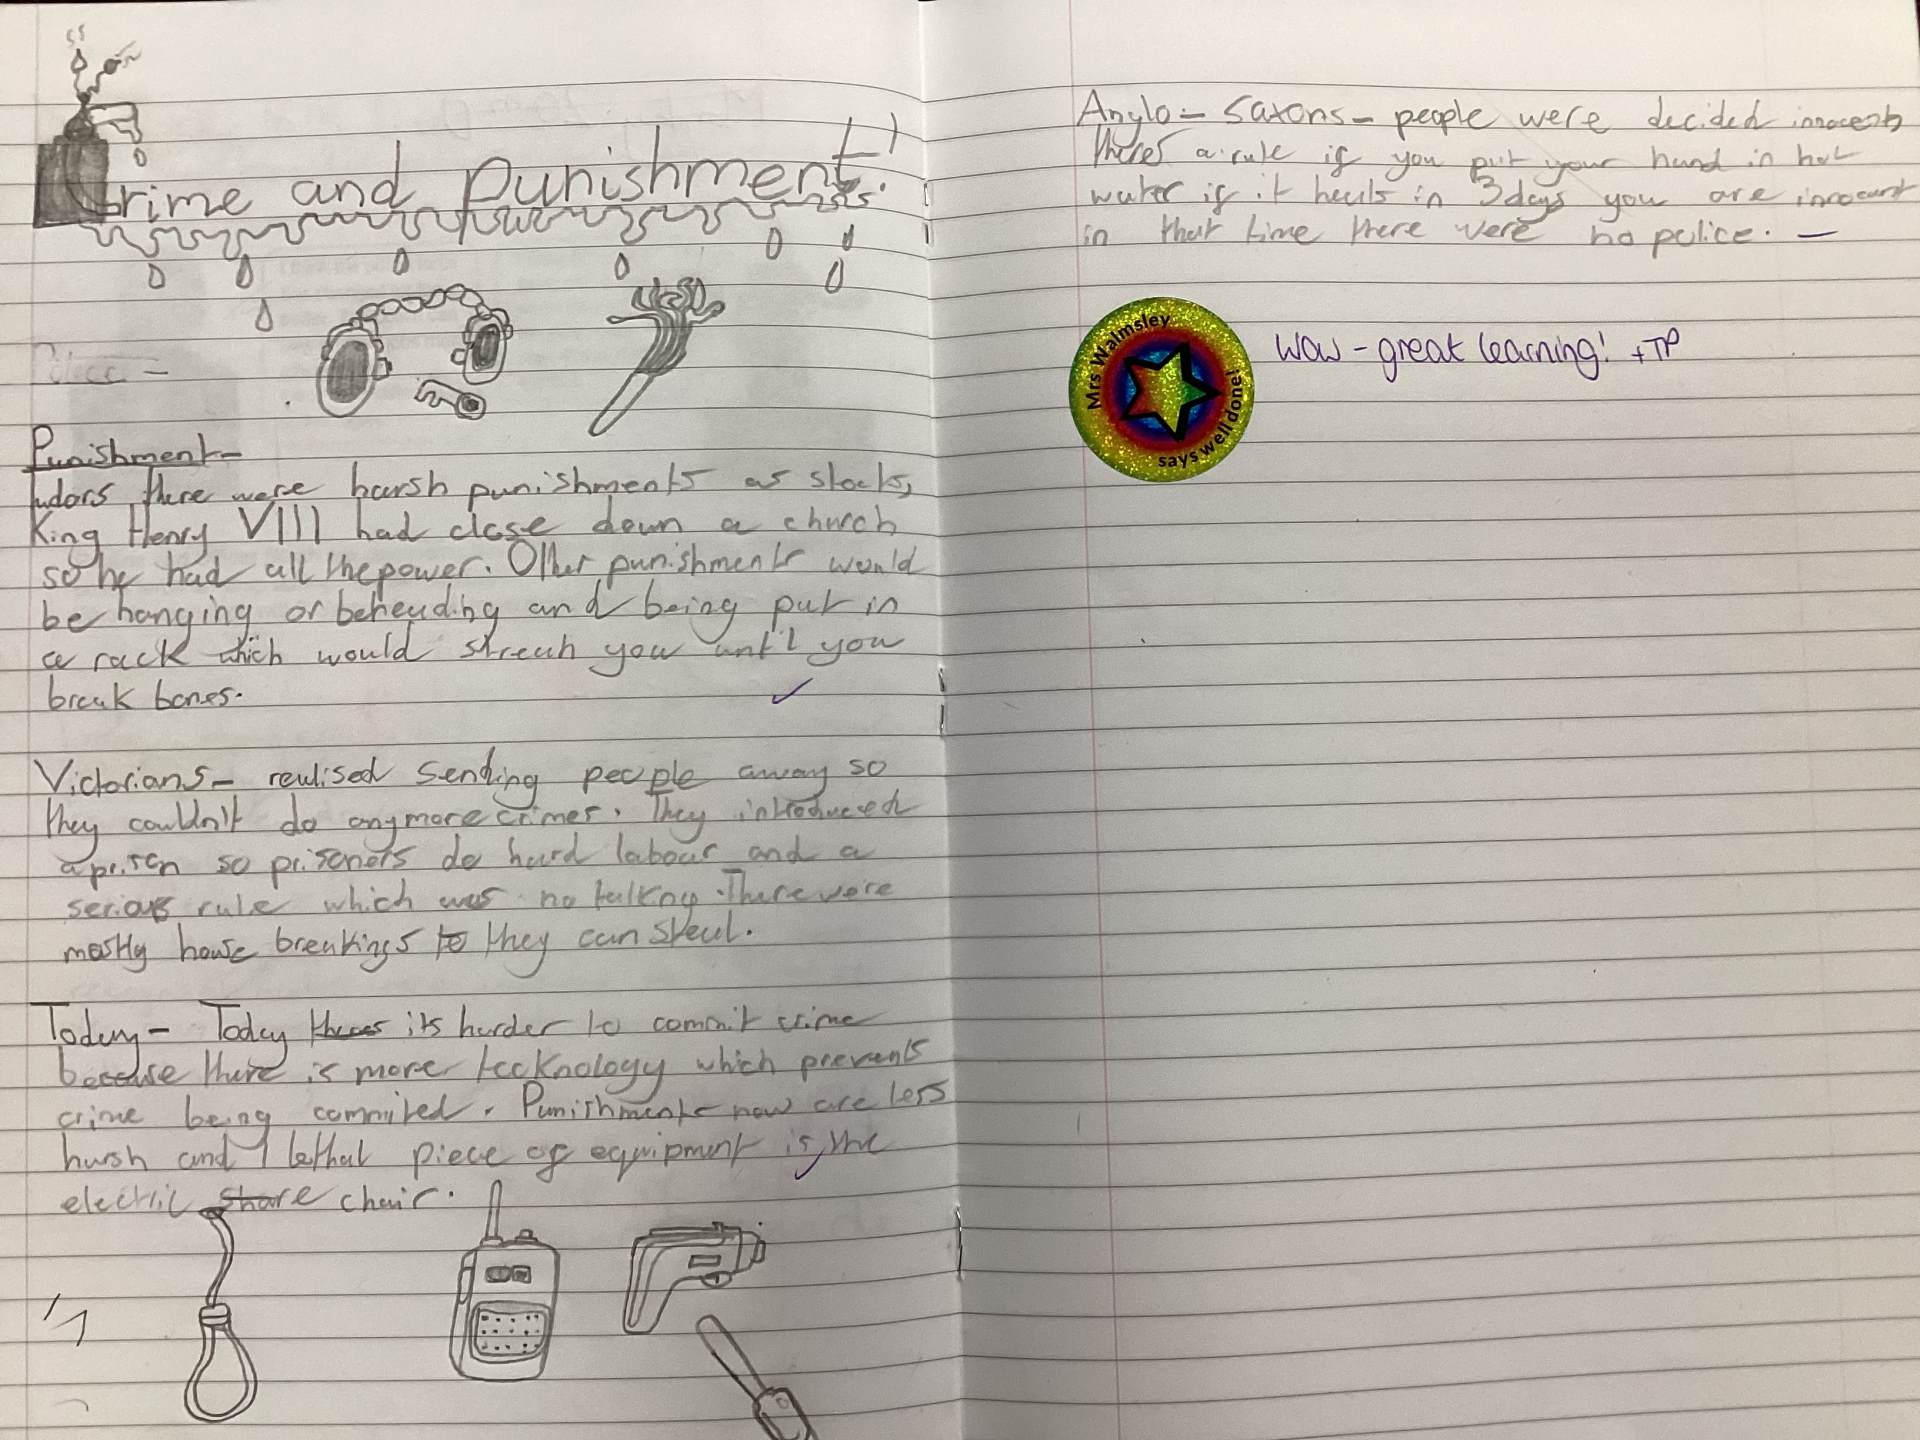 Crime and Punishment!
Police -
Punishment-
Tudors there were harsh punishments as stocks,
King Henry VIII had close down a church
so he had all the power. Other punishments would
be hanging or beheading and being put in
a rack which would streach you until you
break bones.
Victorians- realised sending people away so
they couldn't do anymore crimes. They introduced
a prison so prisoners do hard labour and a
serious rule which was no talking. There were
mostly house breakings to they can steal.
Today- Today theres its harder to commit crime
because there is more tecknology which prevents
crime being commited. Punishments now are less
harsh and 1 lethal piece of equipment is the
electric share chair.
Anglo-Saxons- people were decided innocent
theres a rule if you put your hand in hot
water if it heals in 3 days you are innocent
in that time there were no police. -
Mrs Walmsley
says well done!
Wow - great learning! + TP